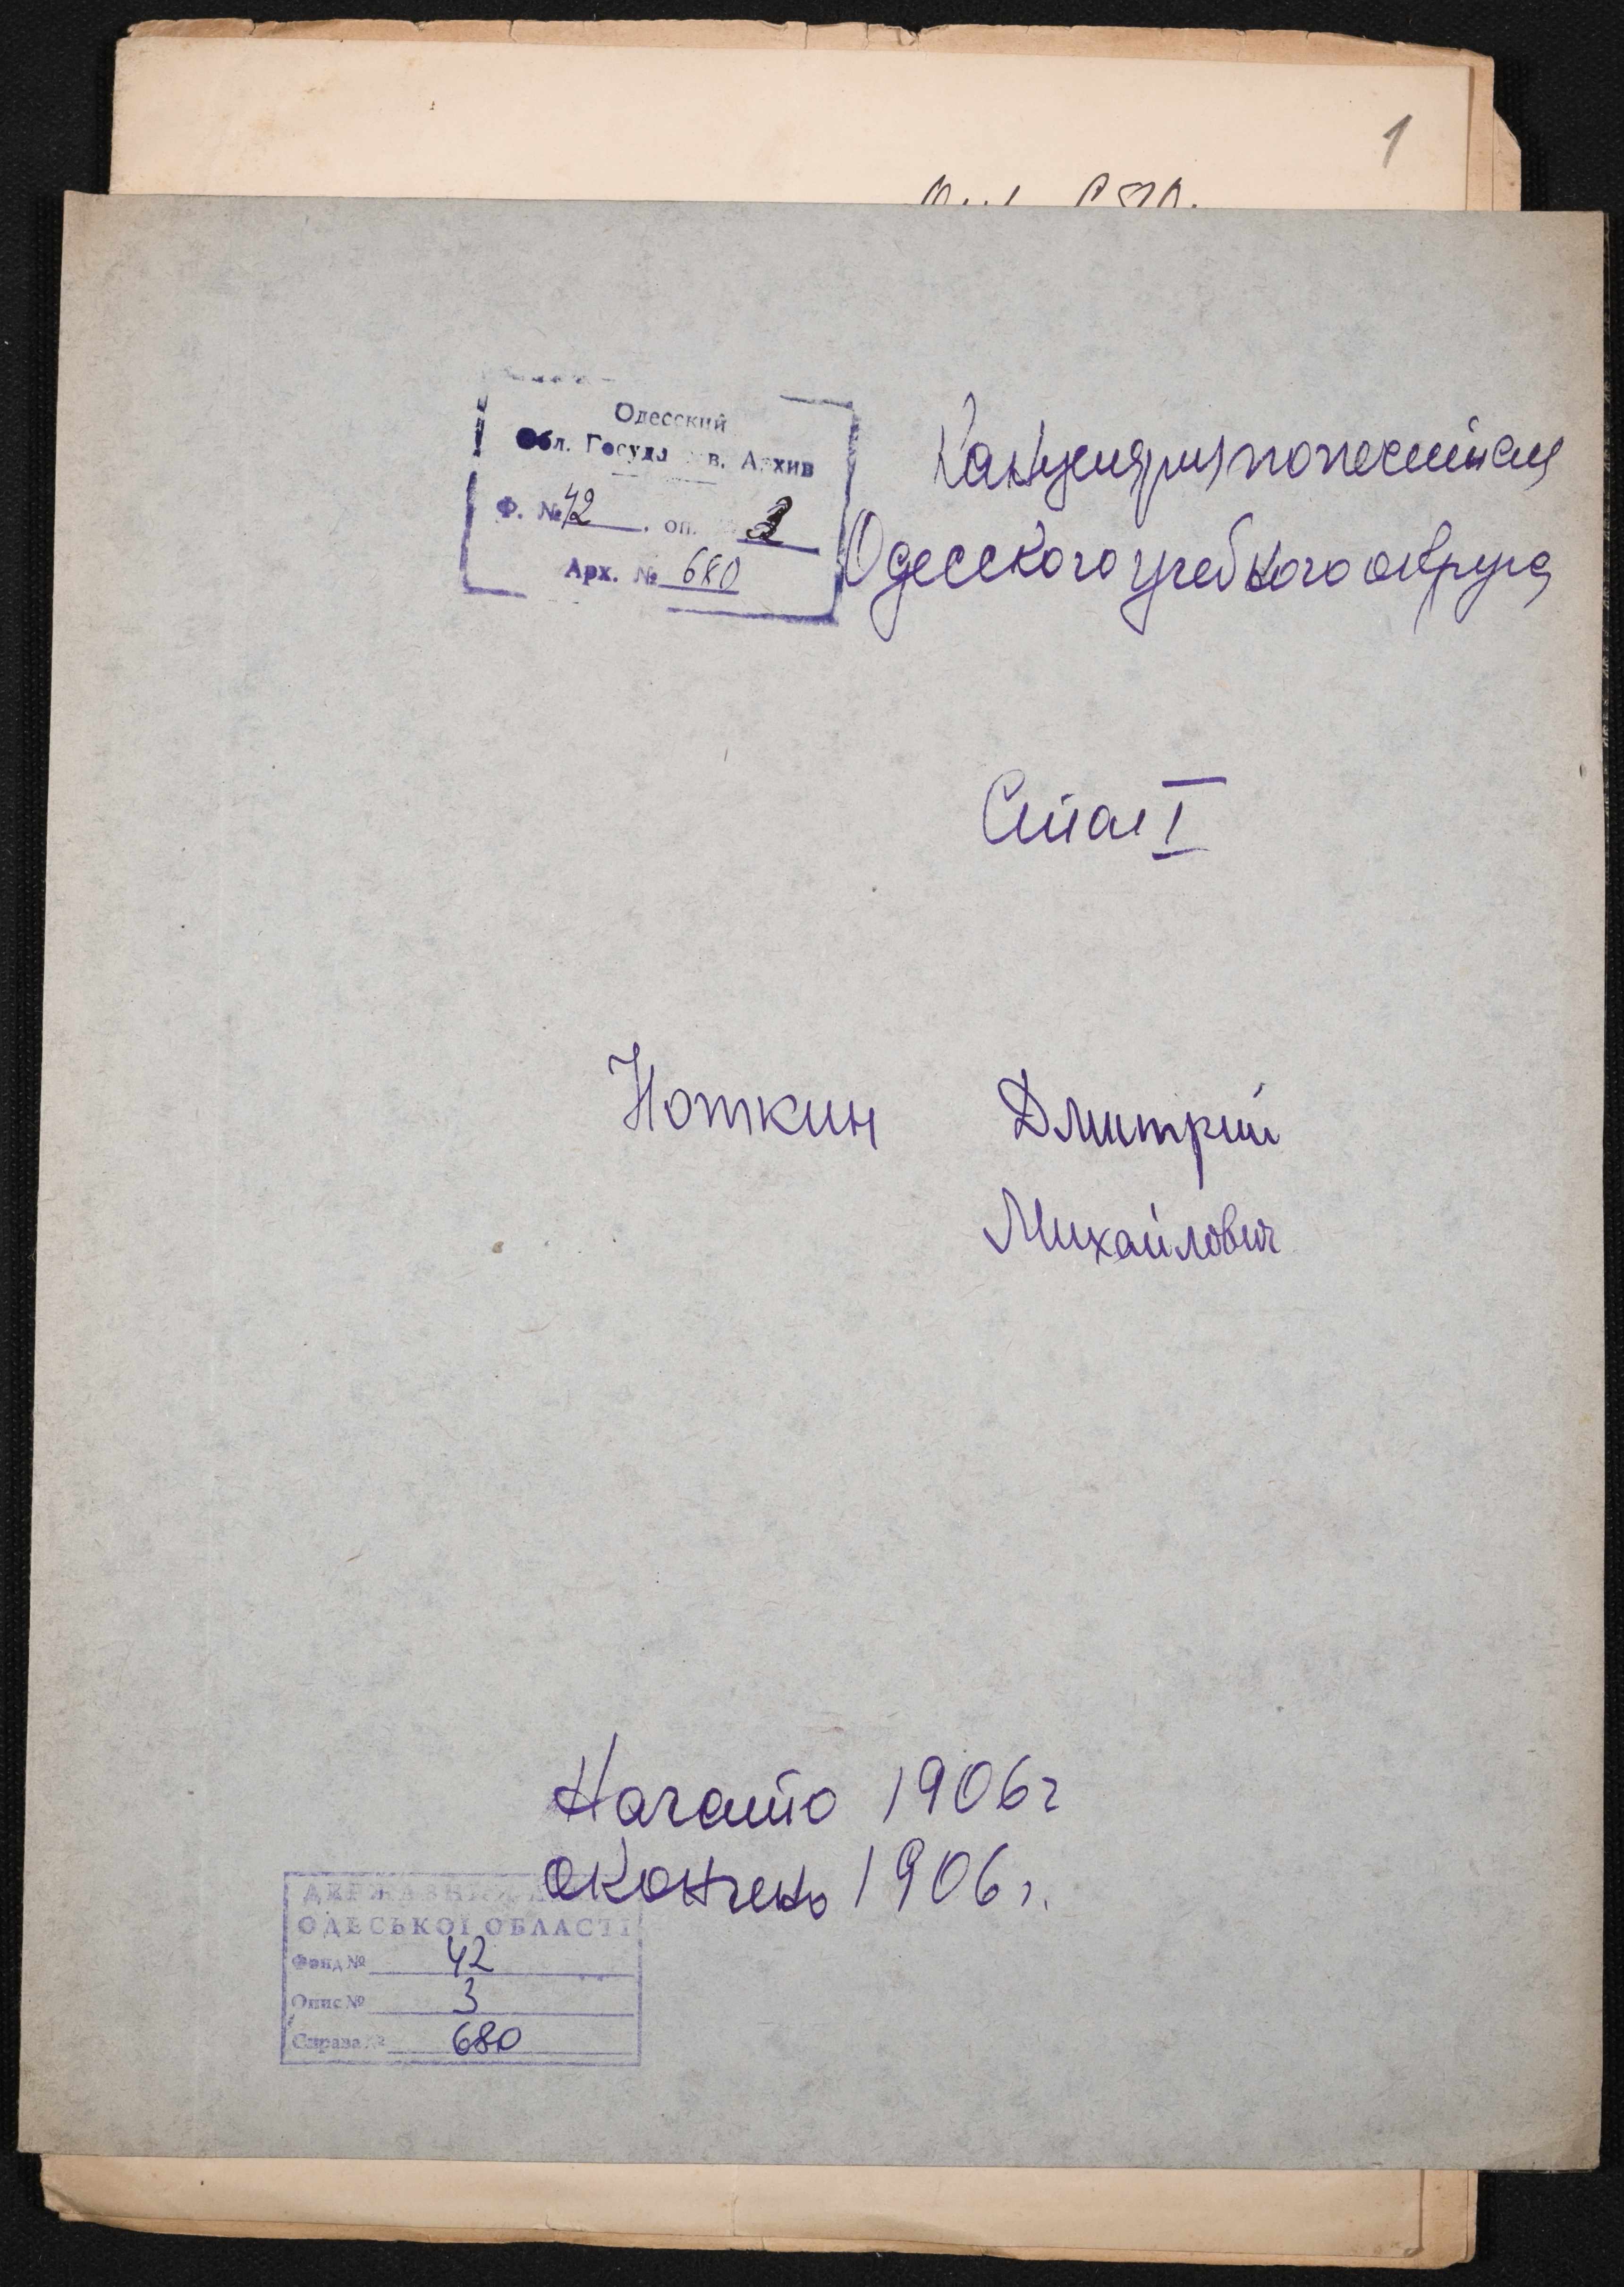 1
Одесский
Обл. Государств. Архив
Ф. № 42, оп. 3
Арх. № 680
Канцелярия попечителя
Одесского учебного округа
Стол I
Ноткин Дмитрий
Михайлович
Начато 1906 г
окончено 1906 г.
ДЕРЖАВНИЙ
ОДЕСЬКОЇ ОБЛАСТІ
Фонд № 42
Опис № 3
Справа № 680